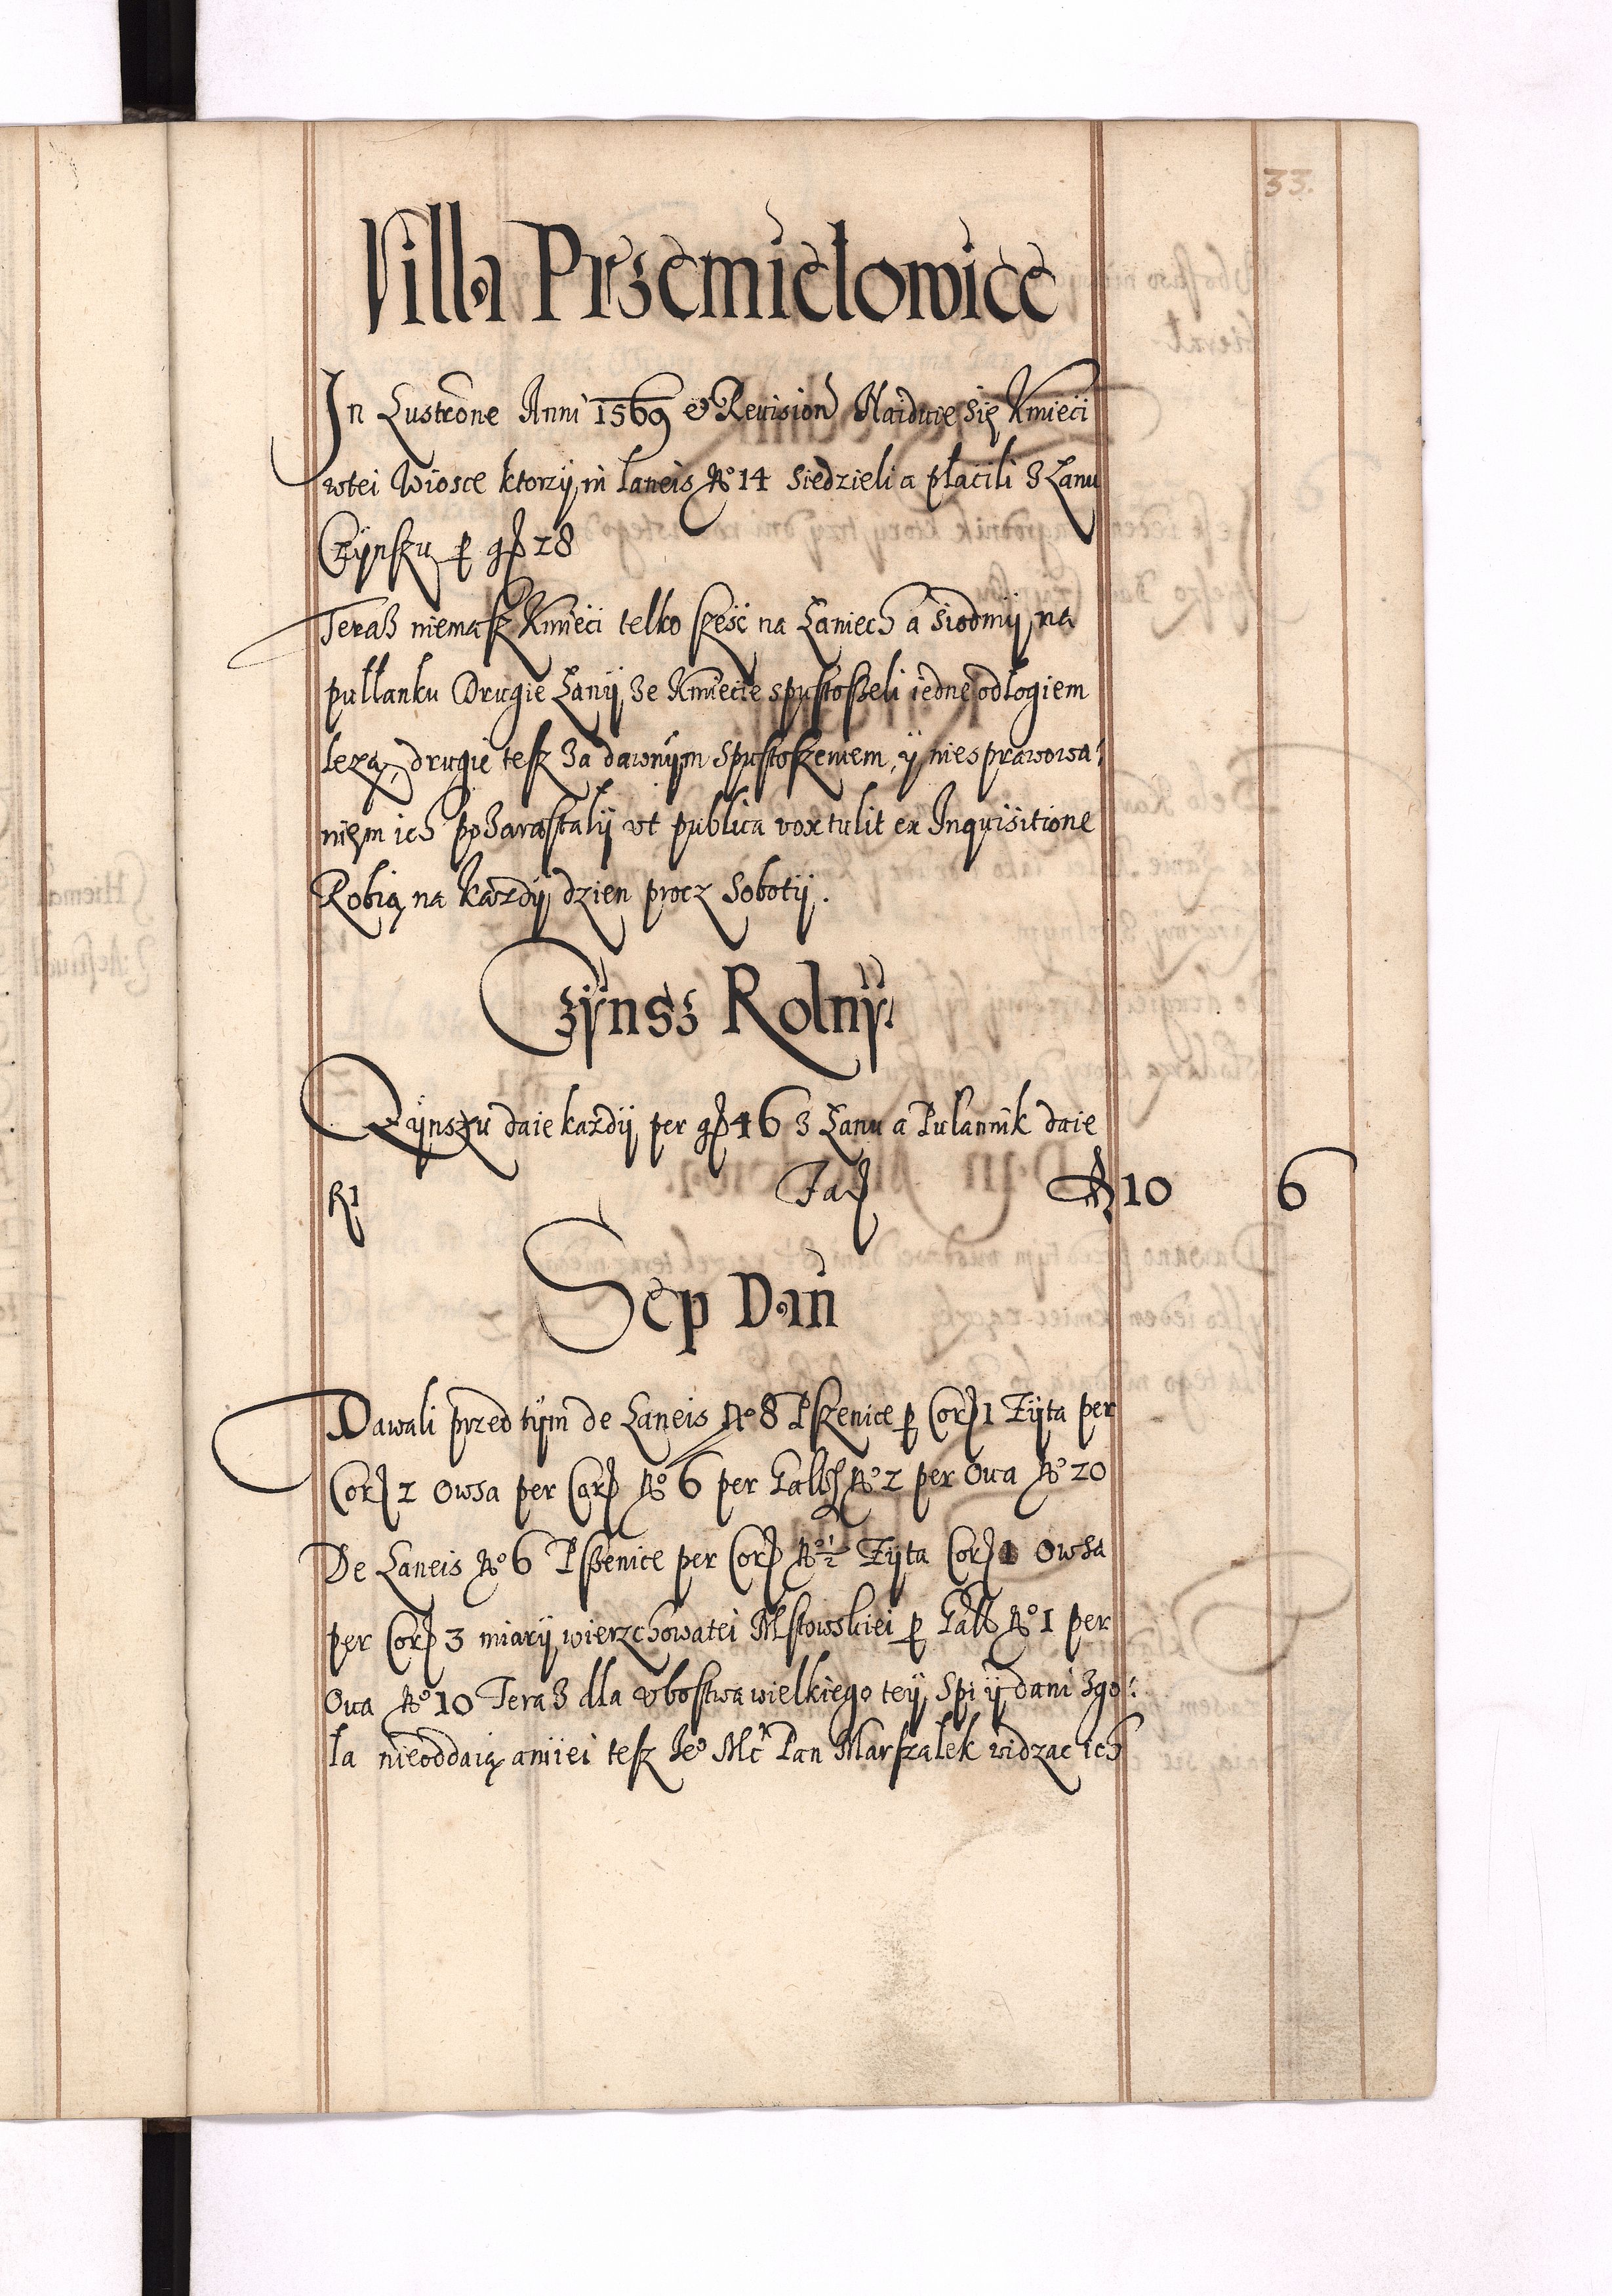 33.
Villa Przemielowice
In Lustrone Anni 1569 & Reuision Naiduie Się Kmieci
wtei Wiosce ktorzÿ in laneis No 14 Siedzieli a płacili З Łanu
CzÿnsZu p gR 28
Teraz niemasz Kmieci telko szesc na Łaniech a siodmÿ na
pułłanku Drugie Łanÿ Ze Kmiecie spustoszeli iedne odłogiem
leza, drugie tesz Za dawnÿm Spustoszeniem, ÿ niesprawowa:
nięm ich poZarastalÿ vt publica vox tulit ex Inquisitione
Robią na kazdÿ dzien procz Sobotÿ.
Czÿnsz Rolnÿ
Czÿnszu daie kazdÿ per gR 46 З Łanu a Pułannik daie
R1 Fac R 10 6
Sep Dan
Dawali przed tÿm de Laneis No 8 Pszenice p Cor 1 Zÿta per
Cor 2 Owsa per Cor No 6 per Gall No 2 per Oua No 20
De Laneis No 6 Pszenice per Cor No ½ Zÿta Cor 1 Owsa
per Cor 3 miarÿ wierzchowatei Mstowskiei p Gall No 1 per
Oua No 10 Teraz dla vbostwa wielkiego teÿ Spi ÿ dani Zgo:
ła nieoddaią aniiei tesz Jeo Mć Pan Marszałek widzac ich